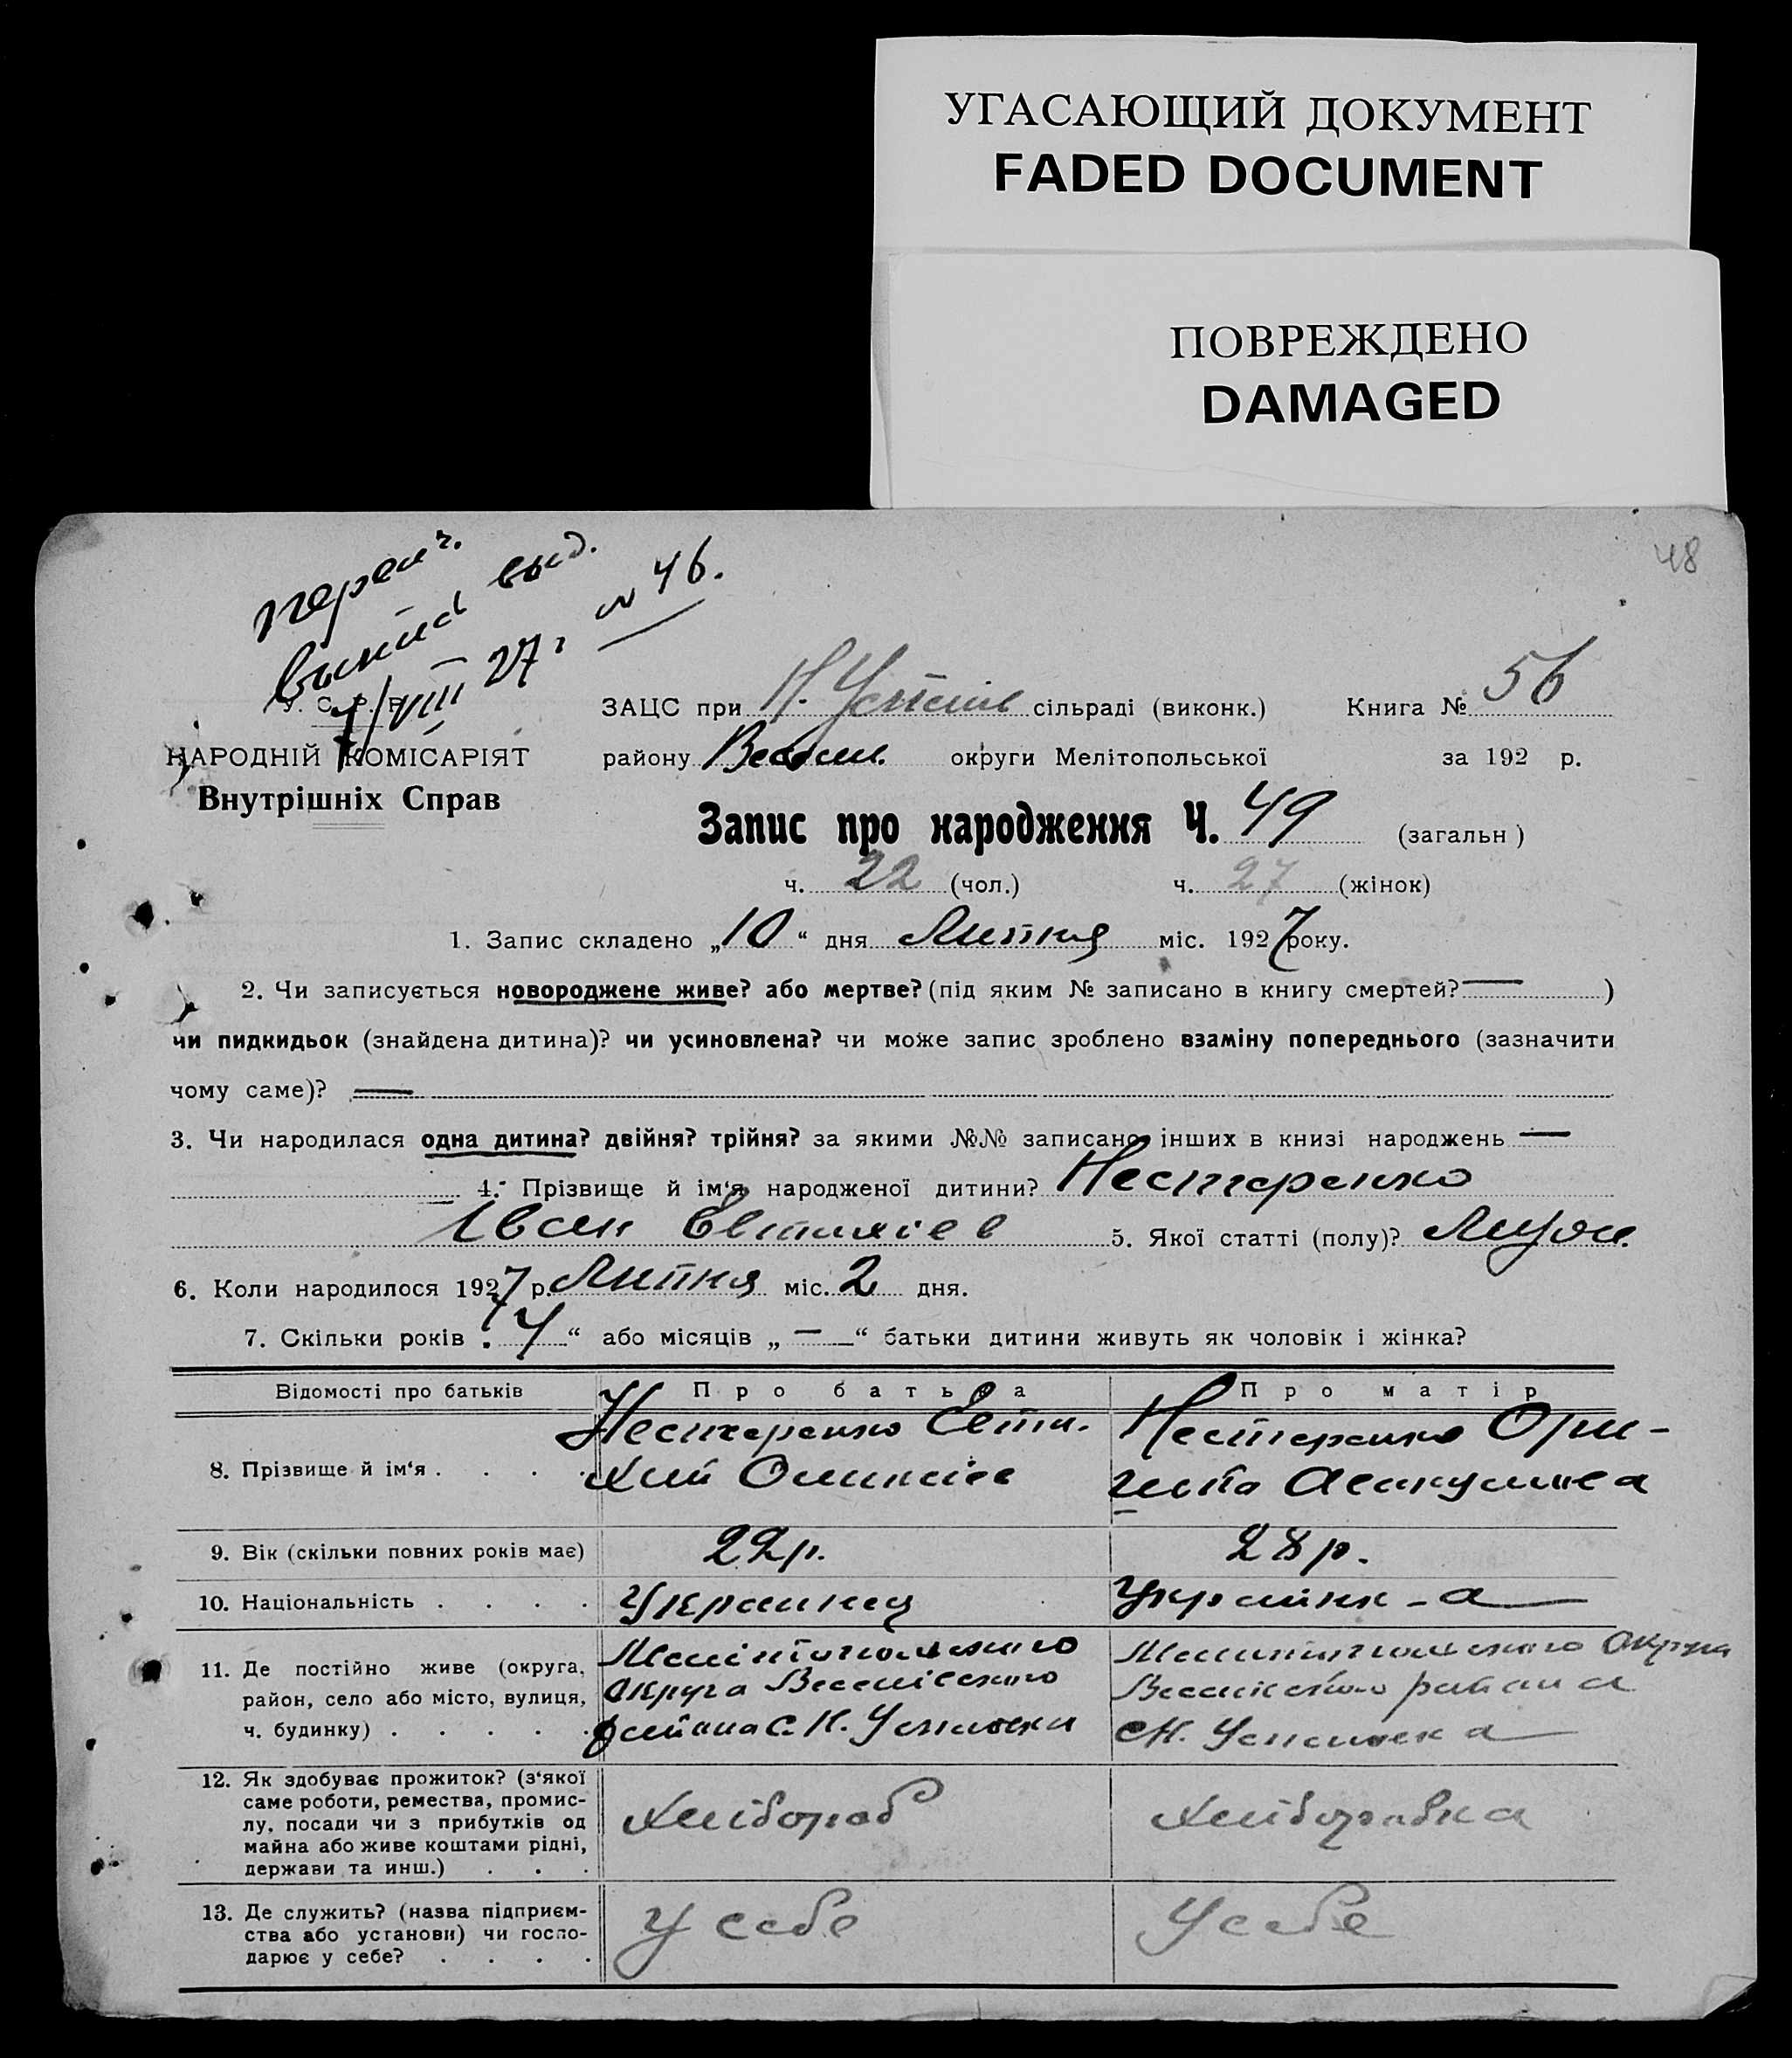 УГАСАЮЩИЙ ДОКУМЕНТ
FADED DOCUMENT
ПОВРЕЖДЕНО
DAMAGED
48
выд.
№ 46.
7/VIII 27 г.
У. С. Р. Р.
НАРОДНІЙ КОМІСАРІЯТ
Внутрішніх Справ
ЗАЦС при Н. сільраді (виконк.) Книга № 56
району Весел. округи Мелітопольської за 192 р.
Запис про народження Ч. 49 (загальн)
ч. 22 (чол.) ч. 27 (жінок)
1. Запис складено „10“ дня Липня міс. 1927 року.
2. Чи записується новороджене живе? або мертве? (під яким № записано в книгу смертей? — )
чи пидкидьок (знайдена дитина)? чи усиновлена? чи може запис зроблено взаміну попереднього (зазначити
чому саме)? —
3. Чи народилася одна дитина? двійня? трійня? за якими №№ записано інших в книзі народжень —
4. Прізвище й ім‘я народженої дитини? Нестеренко
Іван Евтихіев 5. Якої статті (полу)? Мужс.
6. Коли народилося 1927 р. Липня міс. 2 дня.
7. Скільки років „4“ або місяців „—“ батьки дитини живуть як чоловік і жінка?
Відомості про батьків Про батька Про матір
8. Прізвище й ім‘я . . . . Нестеренко Евти- Нестеренко Ори-
хий
9. Вік (скільки повних років має) 22 р. 28 р.
10. Національність . . . . Украинец Украйнк-а
11. Де постійно живе (округа, Мелітопольского Мелитопольского Округа
район, село або місто, вулиця, Округа Веселівского района
ч. будинку) . . . . . района С. Н. С Н.
12. Як здобуває прожиток? (з‘якої
саме роботи, ремества, промис-
лу, посади чи з прибутків од Хлібороб Хліборобка
майна або живе коштами рідні,
держави та инш.) . . .
13. Де служить? (назва підприєм-
ства або установи) чи госпо- У себе У себе
дарює у себе? . . . .